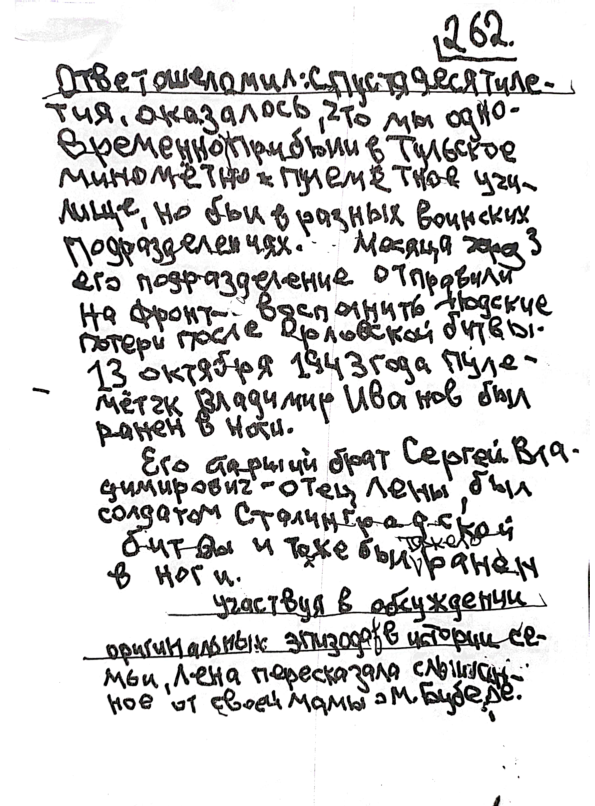 262.
Ответ ошеломил: спустя десятиле-
тия, оказалось, что мы одно-
временно прибыли в Тульское
миномётно-пулемётное учи-
лище, но были в разных воинских
подразделениях. Месяца 3
его подразделение отправили
на фронт - восполнить людские
потери после Орловской битвы.
13 октября 1943 года пуле-
мётчк Владимир Иванов был
ранен в ноги.
Его старший брат Сергей Вла-
димирович - отец Лены, был
солдатом Сталинградской
битвы и тоже был тяжело ранен
в ноги.
участвуя в обсуждении
оригинальных эпизодов в истории се-
мьи, Лена пересказала слышан-
ное от своей мамы о М. Бубеде.